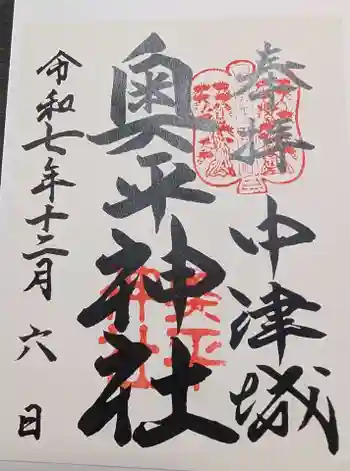 奉拝
中津城
奥平神社
令和七年十二月六日
奥平
神社